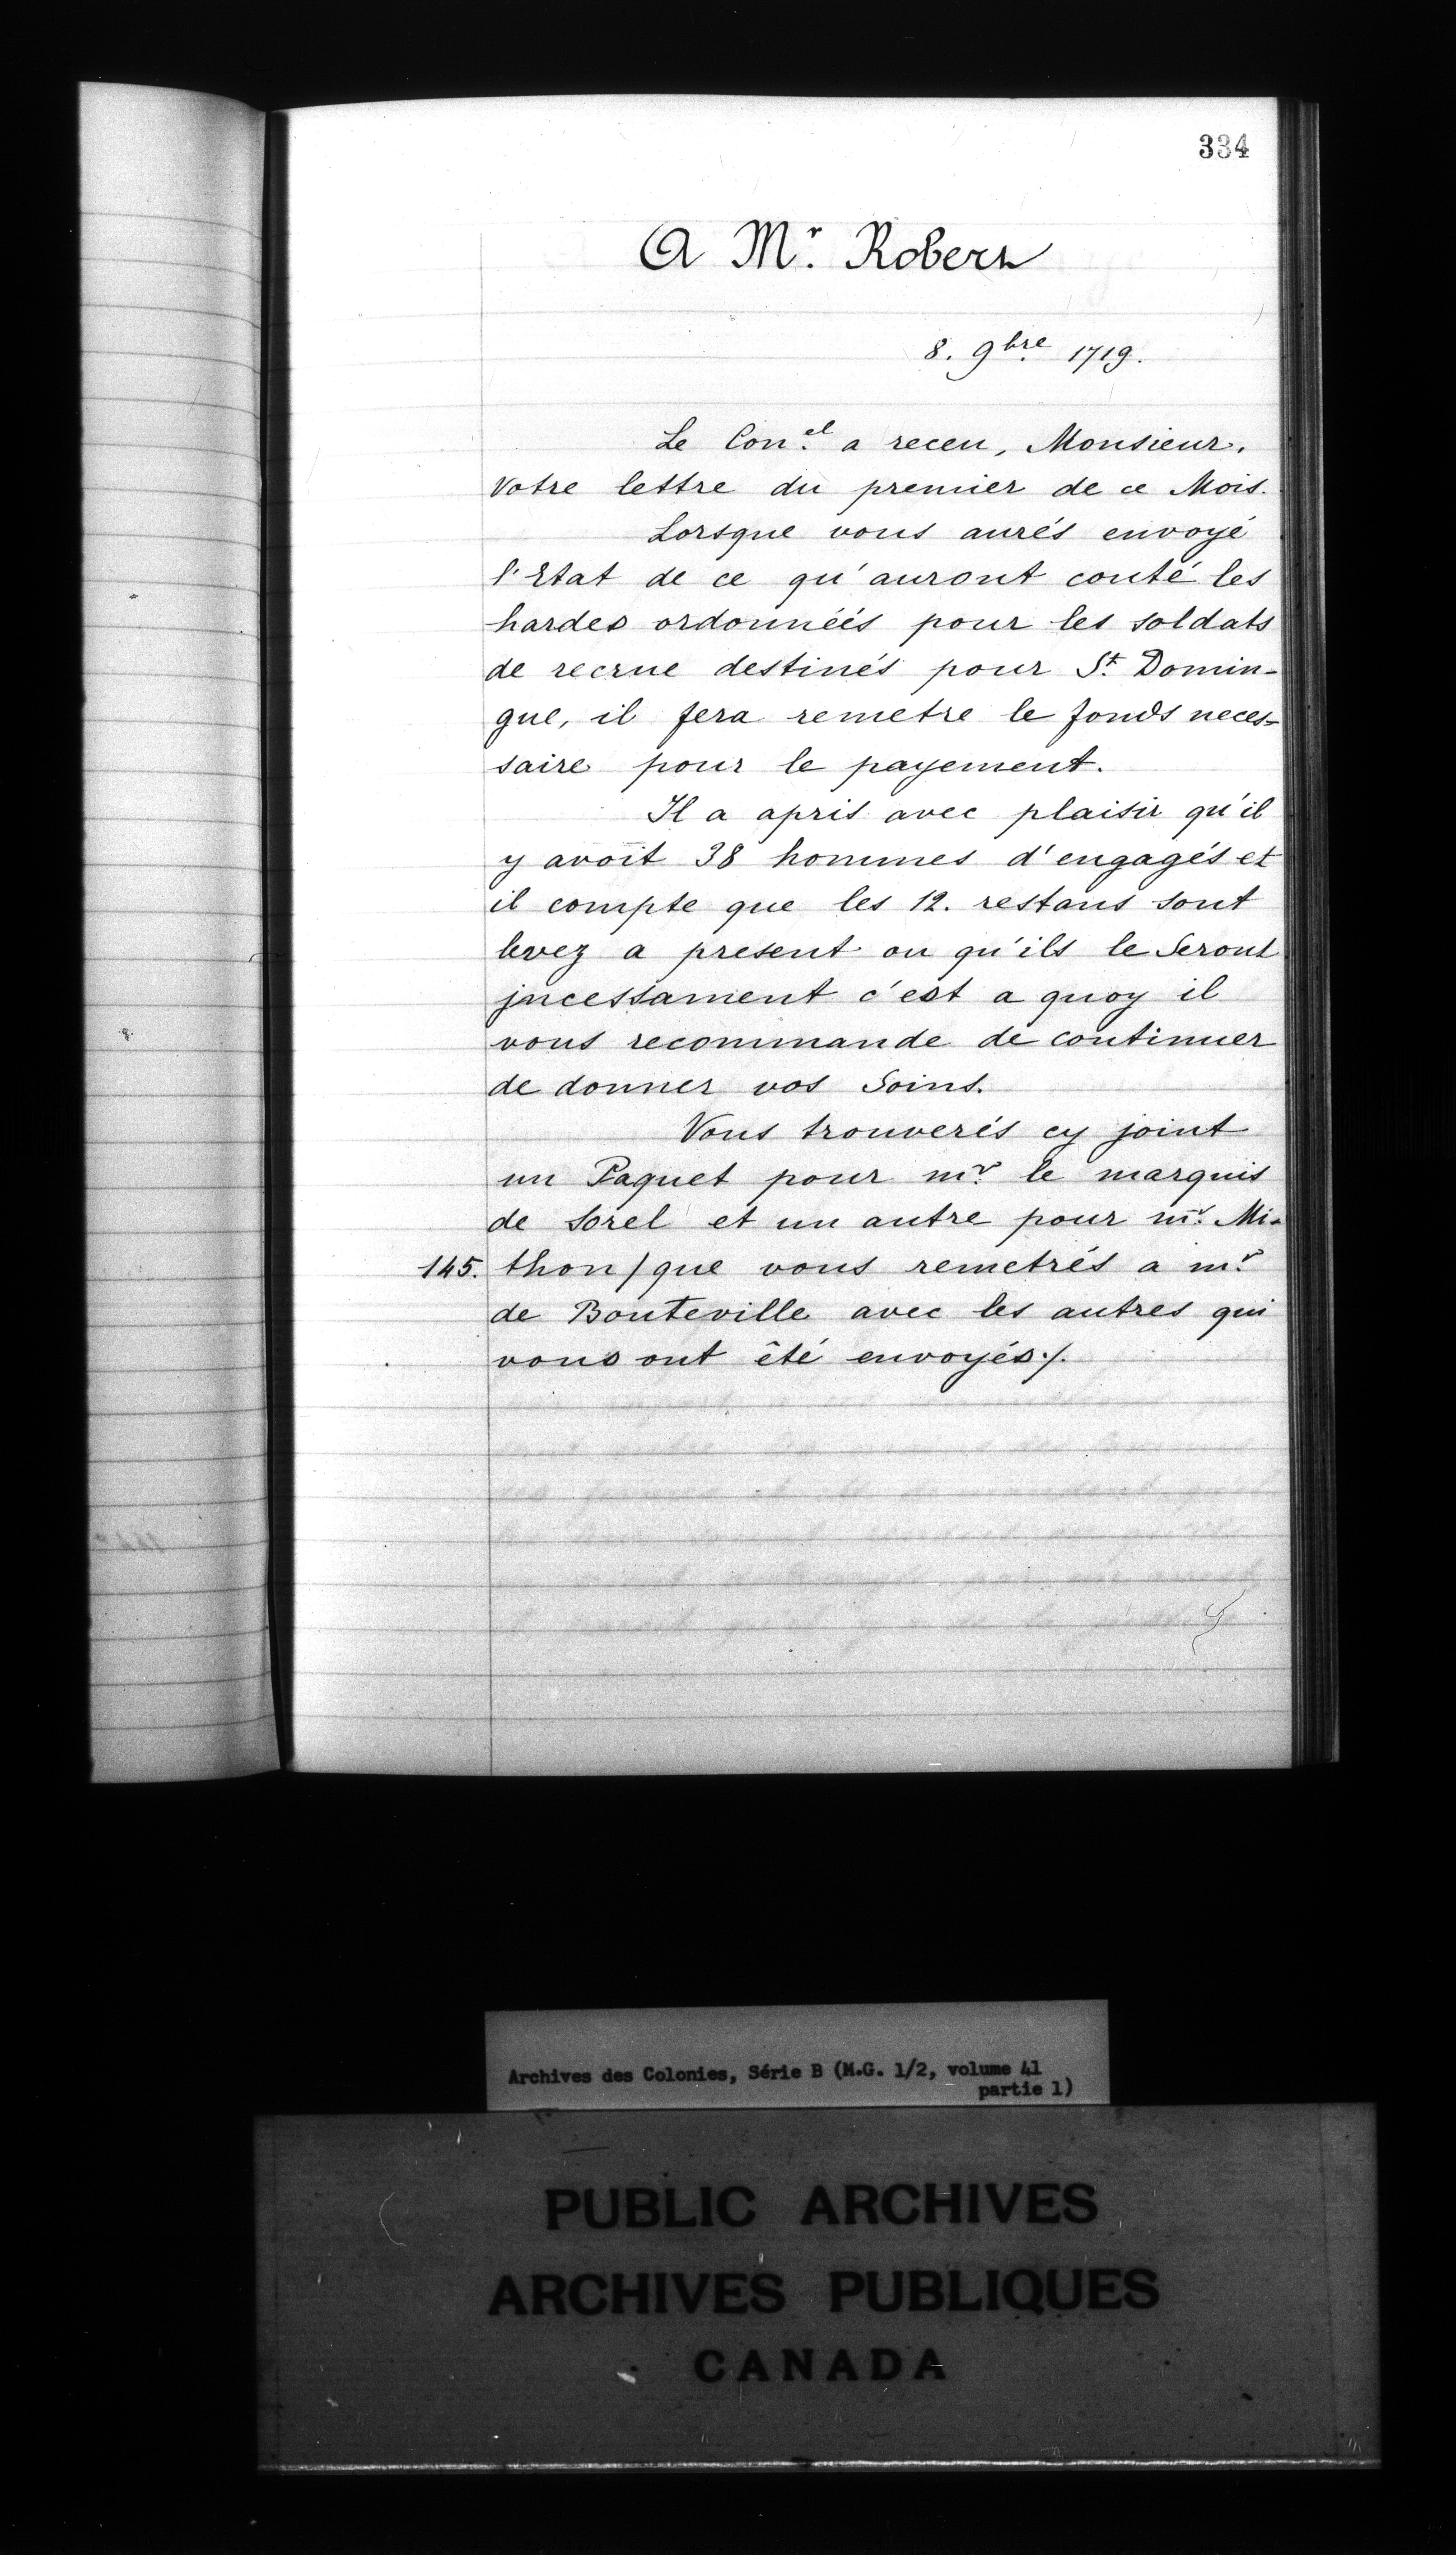 334
A Mr. Robert
8. 9bre 1719.
Le Con.el a receu, Monsieur,
votre lettre du premier de ce Mois.
Lorsque vous aurés envoyé
l'Etat de ce qu'auront couté les
hardes ordonnéés pour les soldats
de recrue destinés pour St. Domin-
gue, il fera remetre le fonds neces-
saire pour le payement.
Il a apris avec plaisir qu'il
y avoit 38 hommes d'engagés et
il compte que les 12. restans sont
levez a present ou qu'ils le Seront
jncessament c'est a quoy il
vous recommande de continuer
de donner vos Soins.
Vous trouverés cy joint
un Paquet pour mr. le marquis
de Sorel et un autre pour mr. Mi-
145. thon/que vous remetrés a mr.
de Bouteville avec les autres qui
vous ont êté envoyés./.
Archives des Colonies, Série B (M.G. 1/2, volume 41
partie 1)
PUBLIC ARCHIVES
ARCHIVES PUBLIQUES
CANADA